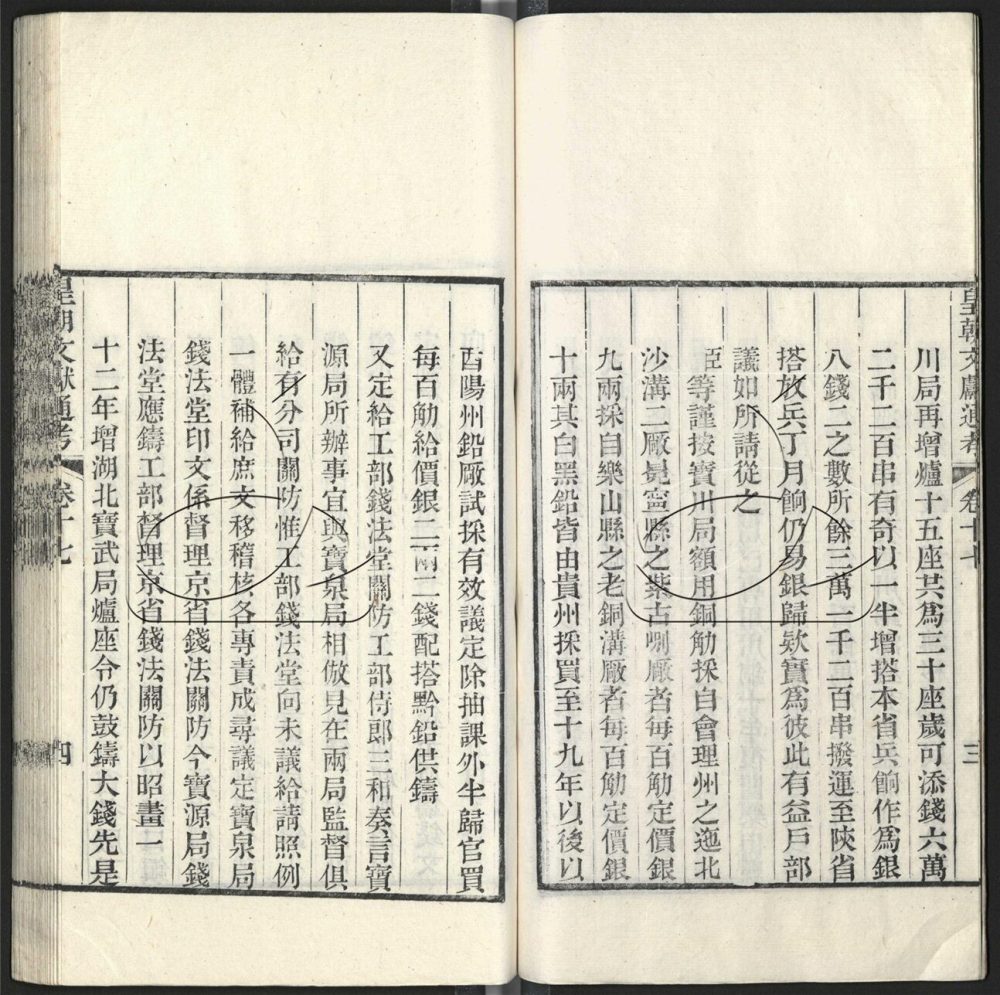 皇朝文獻通考 卷十七 三
川局再增爐十五座共爲三十座歲可添錢六萬
二千二百串有奇以一半增搭本省兵餉作爲銀
八錢二之數所餘三萬一千二百串撥運至陝省
搭放兵丁月餉仍易銀歸欵實爲彼此有益戶部
議如所請從之
臣等謹按寶川局額用銅觔採自會理州之迤北
沙溝二厰冕寧縣之紫古哵厰者每百觔定價銀
九兩採自樂山縣之老銅溝厰者每百觔定價銀
十兩其白黑鉛皆由貴州採買至十九年以後以
酉陽州鉛厰試採有效議定除抽課外半歸官買
每百觔給價銀二兩二錢配搭黔鉛供鑄
又定給工部錢法堂關防工部侍郎三和奏言寶
源局所辦事宜與寶泉局相倣見在兩局監督俱
給有分司關防惟工部錢法堂向未議給請照例
一體補給庶文移稽核各專責成尋議定寶泉局
錢法堂印文係督理京省錢法關防今寶源局錢
法堂應鑄工部督理京省錢法關防以昭畫一
十二年增湖北寶武局爐座令仍鼓鑄大錢先是
皇朝文獻通考 卷十七 四